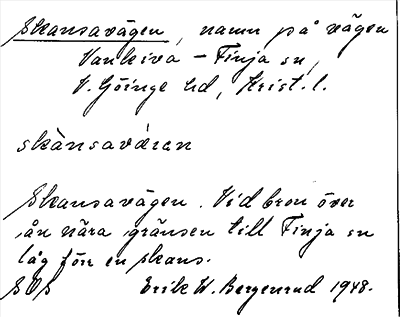 Skansavägen, namn på vägen
Vankiva - Finja sn,
V. Göinge hd, Krist. l.
skànsavá̈ren
Skansavägen. Vid bron över
ån nära gränsen till Finja sn
låg förr en skans.
SOS Erik W. Bergenrud 1948.